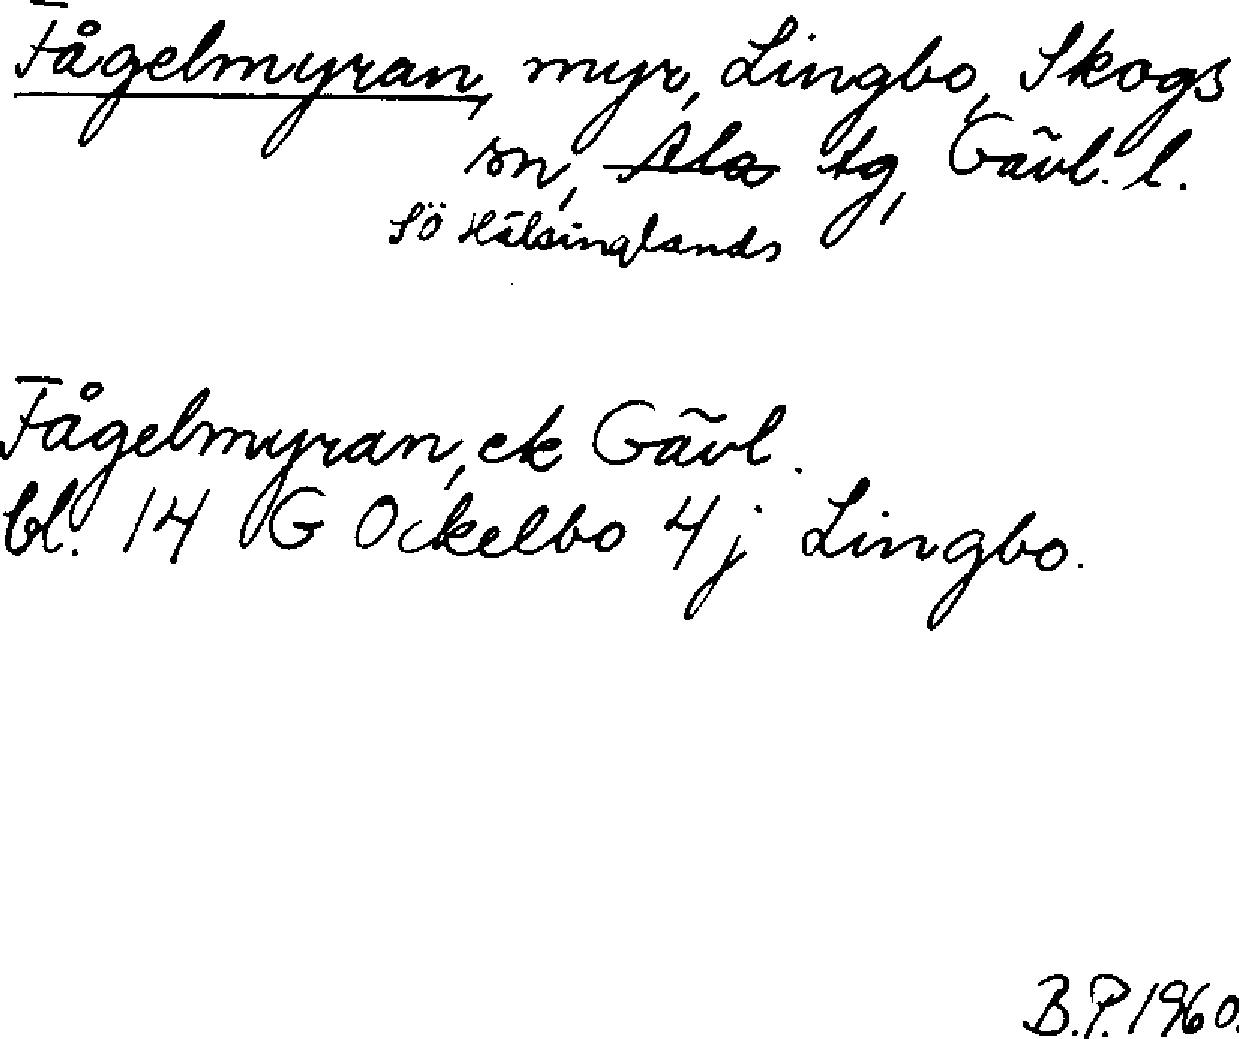 Fågelmyran, myr, Lingbo, Skogs
sn, Ala tg, Gävl. l.
Sö Hälsinglands
Fågelmyran, ek Gävl.
bl. 14 G Ockelbo 4 j Lingbo.
B.P. 1960.